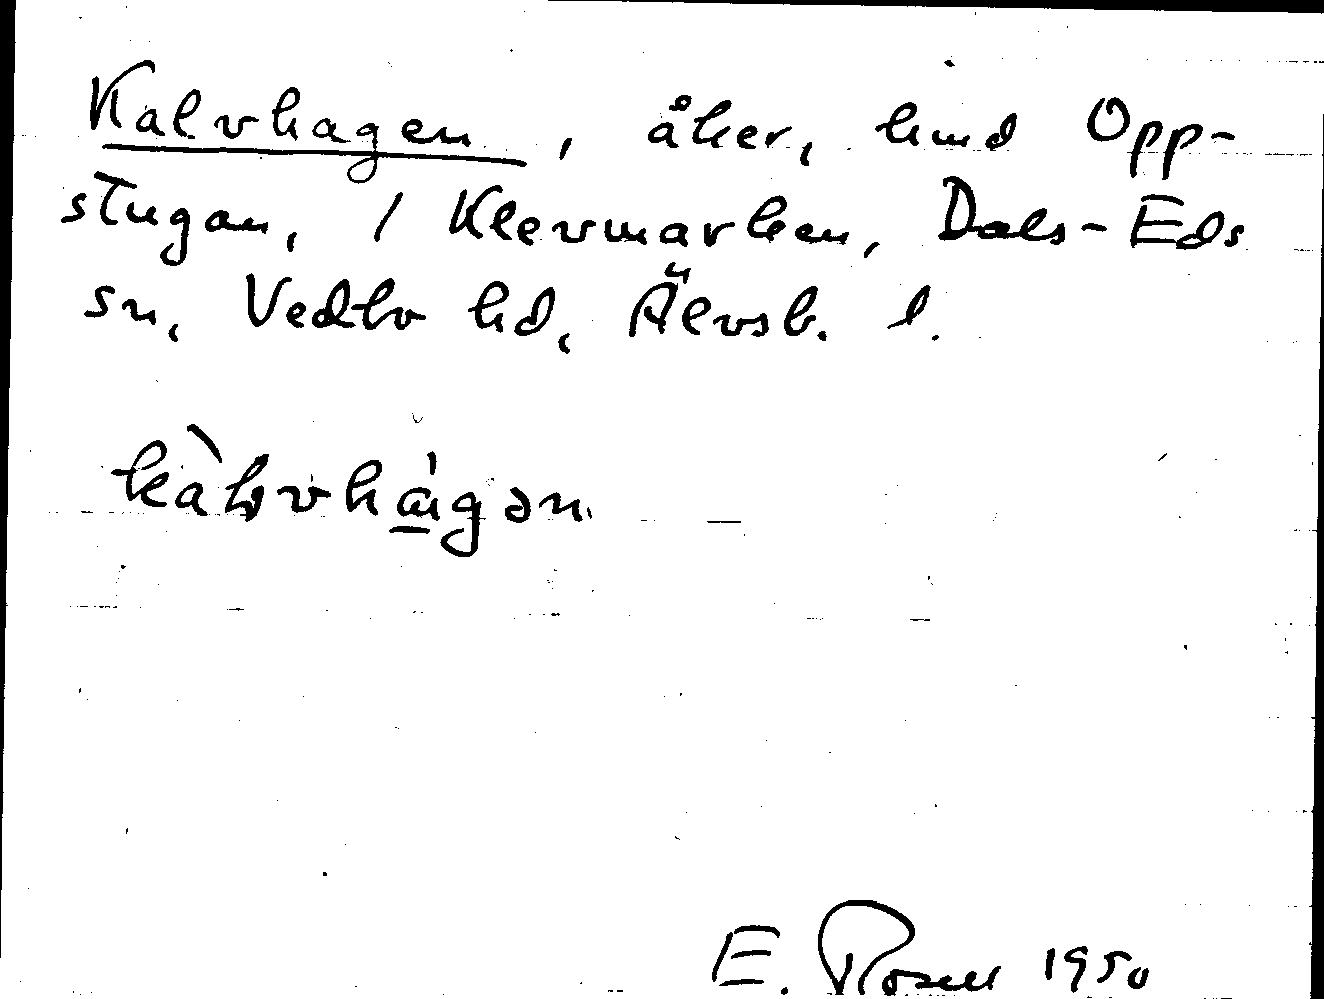 Kalvhagen, åker, hmd Opp-
stugan, 1 Klevmarken, Dals-Eds
sn, Vedbo hd, Älvsb. l.
E. Rosell 1950